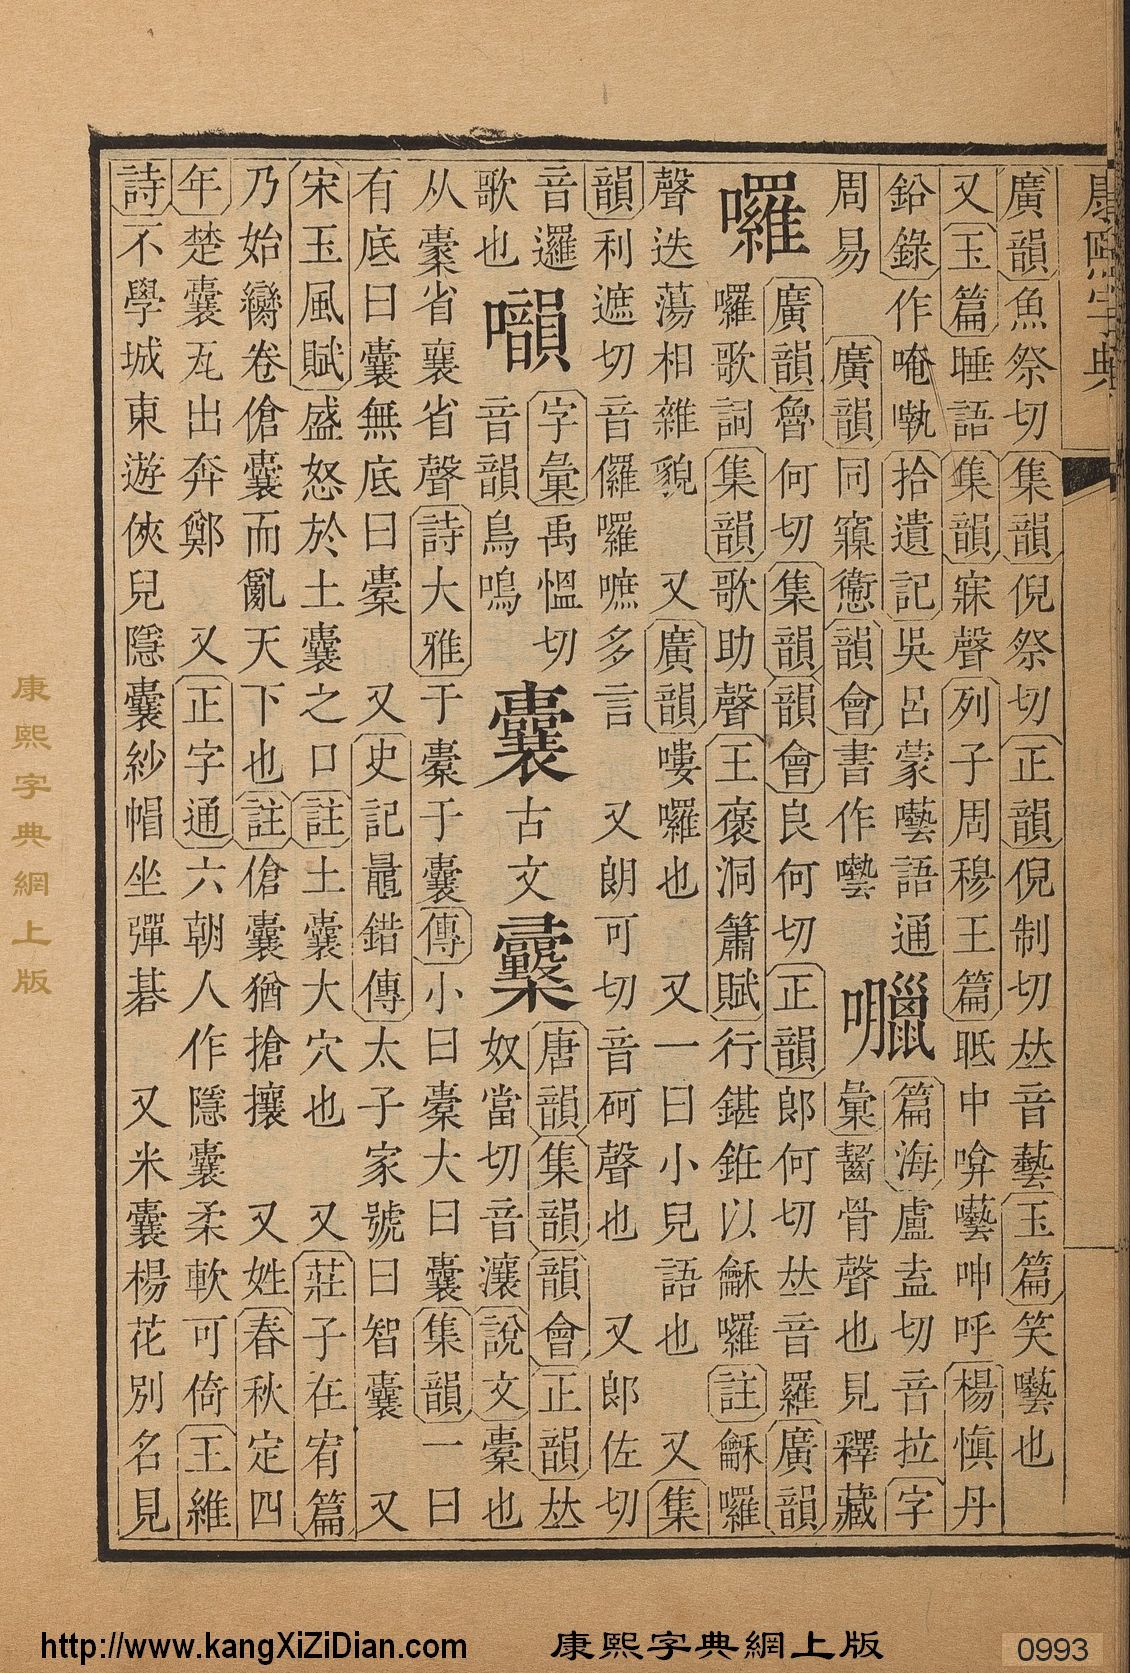 康熙字典
廣韻魚祭切集韻倪祭切正韻倪制切𠀤音藝玉篇笑囈也
又玉篇睡語集韻寐聲列子周穆王篇眂中啽囈呻呼楊愼丹
鉛錄作唵㘍拾遺記吳呂蒙囈語通
周易
廣韻同寱𢣾韻會書作囈
𡃴
篇海盧盍切音拉字
彙齧骨聲也見釋藏
囉
廣韻魯何切集韻韻會良何切正韻郎何切𠀤音羅廣韻
囉歌詞集韻歌助聲王褒洞簫賦行鍖銋以龢囉註龢囉
聲迭蕩相雜貌 又廣韻嘍囉也 又一曰小兒語也 又集
韻利遮切音儸囉嗻多言 又朗可切音砢聲也 又郎佐切
音邏
歌也
𡅧
字彙禹慍切
音韻鳥鳴
囊
古文
㯻
唐韻集韻韻會正韻𠀤
奴當切音瀼說文橐也
从橐省襄省聲詩大雅于橐于囊傳小曰橐大曰囊集韻一曰
有底曰囊無底曰橐 又史記鼂錯傳太子家號曰智囊 又
宋玉風賦盛怒於土囊之口註土囊大穴也 又莊子在宥篇
乃始臠卷傖囊而亂天下也註傖囊猶搶攘 又姓春秋定四
年楚囊瓦出奔鄭 又正字通六朝人作隱囊柔軟可倚王維
詩不學城東遊俠兒隱囊紗帽坐彈碁 又米囊楊花別名見
康熙字典網上版
http://www.kangXiZiDian.com 康熙字典網上版 0993